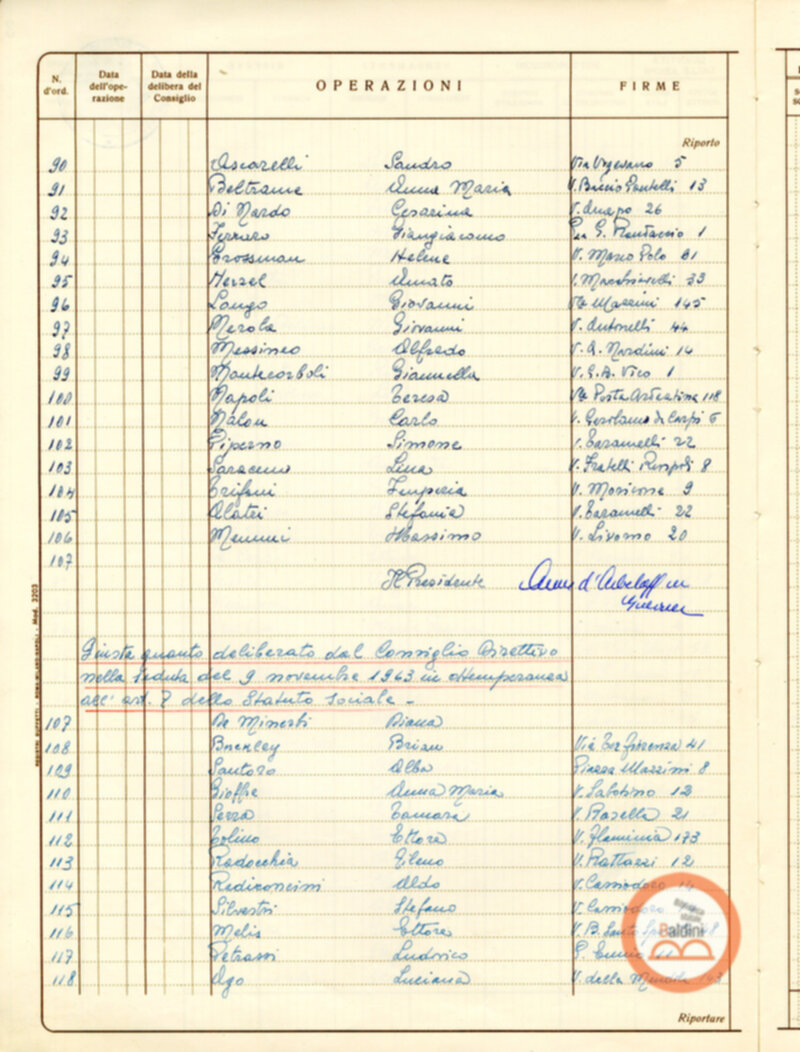 N. d'ord. Data dell'ope- razione Data della delibera del Consiglio OPERAZIONI FIRME
Riporto
90 Ascarelli Sandro Via Vigevano 5
91 Beltrame Anna Maria V. Baccio Pontelli 13
92 Di Nardo Cesarina V. Anapo 26
93 Ferraro Giangiacomo 1
94 Grossman Helene V. Marco Polo 81
95 Herzel Amato V. Machiavelli 33
96 Longo Giovanni Vle Mazzini 145
97 Merola Giovanni V. Antonelli 44
98 Messineo Alfredo V. A. Nardini 14
99 Montecorboli Giannella V. G. B. Vico 1
100 Napoli Teresa Via Porta Ardeatina 118
101 Nalon Carlo V. Gerolamo da Carpi 6
102 Piperno Simone V. Taramelli 22
103 Saraceno Lina V. Fratelli Ruspoli 8
104 Trifani Imperia V. Moricone 9
105 Alatri Stefania V. Taramelli 22
106 Memmi Massimo V. Livorno 20
107
Il Presidente
Giusta quanto deliberato dal Consiglio Direttivo
nella seduta del 9 novembre 1963 in ottemperanza
all'art. 7 dello Statuto Sociale -
107 De Minerbi Diana
108 Buckley Brian Via Tor Fiorenza 41
109 Santoro Alba Piazza Mazzini 8
110 Gioffre Anna Maria V. Sabotino 12
111 Serra Tamara V. Rasella 21
112 Tolino Ettore V. Flaminia 173
113 Radocchia Eileno V. Rattazzi 12
114 Rediconcini Aldo V. Cassiodoro 14
115 Silvestri Stefano V. Cassiodoro
116 Melis Ettore V. B.
117 Petrassi Ludovico
118 Ago Luciana V. della Mendola 143
Riportare
Mod. 3203
Biblioteca statale Baldini